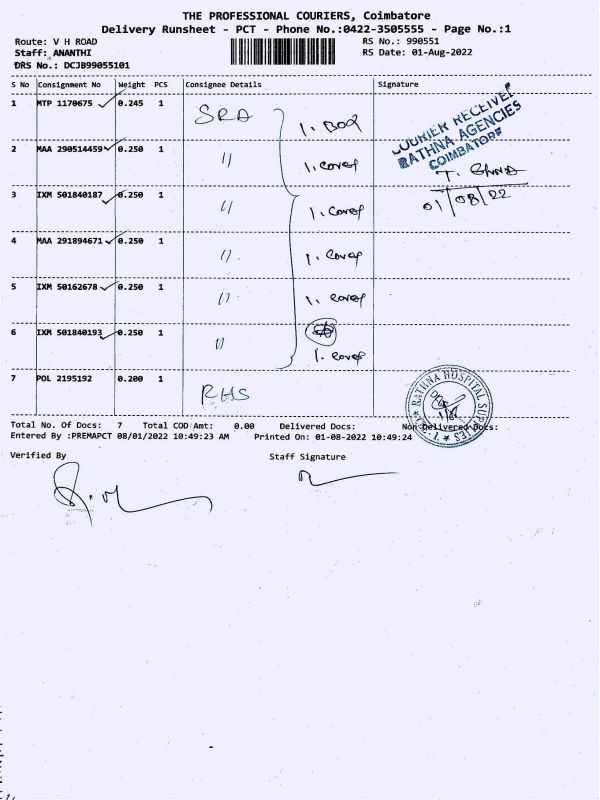 THE PROFESSIONAL COURIERS, Coimbatore
Delivery Runsheet - PCT - Phone No.:0422-3505555 - Page No.:1
Route: V H ROAD RS No.: 990551
Staff: ANANTHI RS Date: 01-Aug-2022
DRS No.: DCJB99055101
S No Consignment No Weight PCS Consignee Details Signature
1 MTP 1170675 0.245 1 SRA 1. Box
COURIER RECEIVED
RATHNA AGENCIES
COIMBATORE
2 MAA 290514459 0.250 1 " 1. cover
01/08/22
3 IXM 501840187 0.250 1 " 1. cover
4 MAA 291894671 0.250 1 " 1. cover
5 IXM 50162678 0.250 1 " 1. cover
6 IXM 501840193 0.250 1 " 1. cover
7 POL 2195192 0.200 1 RHS
RATHNA HOSPITAL SUPPLIES
Total No. Of Docs: 7 Total COD Amt: 0.00 Delivered Docs: Non-Delivered Docs:
Entered By :PREMAPCT 08/01/2022 10:49:23 AM Printed On: 01-08-2022 10:49:24
Verified By Staff Signature